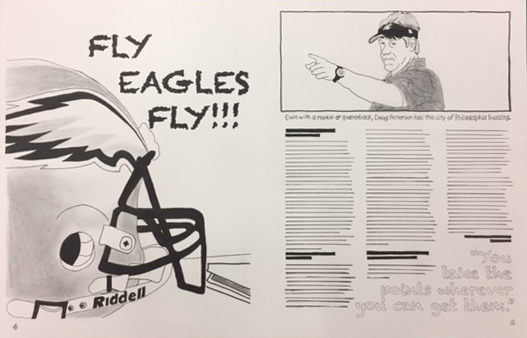 FLY
EAGLES
FLY!!!
Riddell
Even with a rookie at quarterback, Doug Pederson has the city of Philadelphia buzzing.
"You
take the
points wherever
you can get them."